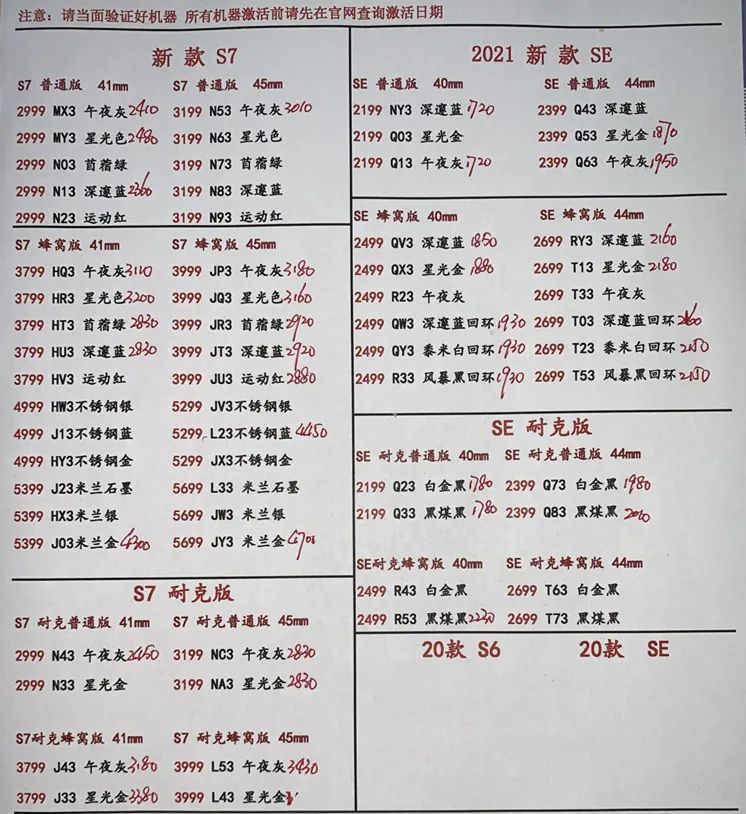 注意：请当面验证好机器 所有机器激活前请先在官网查询激活日期
新 款 S7
S7 普通版 41mm S7 普通版 45mm
2999 MX3 午夜灰2410 3199 N53 午夜灰3010
2999 MY3 星光色2480 3199 N63 星光色
2999 N03 苜蓿绿 3199 N73 苜蓿绿
2999 N13 深邃蓝2360 3199 N83 深邃蓝
2999 N23 运动红 3199 N93 运动红
S7 蜂窝版 41mm S7 蜂窝版 45mm
3799 HQ3 午夜灰3110 3999 JP3 午夜灰3180
3799 HR3 星光色3200 3999 JQ3 星光色3160
3799 HT3 苜蓿绿2830 3999 JR3 苜蓿绿2920
3799 HU3 深邃蓝2830 3999 JT3 深邃蓝2920
3799 HV3 运动红 3999 JU3 运动红2880
4999 HW3不锈钢银 5299 JV3不锈钢银
4999 J13不锈钢蓝 5299 L23不锈钢蓝4450
4999 HY3不锈钢金 5299 JX3不锈钢金
5399 J23米兰石墨 5699 L33 米兰石墨
5399 HX3米兰银 5699 JW3 米兰银
5399 J03米兰金4300 5699 JY3 米兰金4700
S7 耐克版
S7 耐克普通版 41mm S7 耐克普通版 45mm
2999 N43 午夜灰2450 3199 NC3 午夜灰2830
2999 N33 星光金 3199 NA3 星光金2830
S7耐克蜂窝版 41mm S7 耐克蜂窝版 45mm
3799 J43 午夜灰3180 3999 L53 午夜灰3430
3799 J33 星光金3380 3999 L43 星光金
2021 新 款 SE
SE 普通版 40mm SE 普通版 44mm
2199 NY3 深邃蓝1720 2399 Q43 深邃蓝
2199 Q03 星光金 2399 Q53 星光金1870
2199 Q13 午夜灰1720 2399 Q63 午夜灰1950
SE 蜂窝版 40mm SE 蜂窝版 44mm
2499 QV3 深邃蓝1850 2699 RY3 深邃蓝2160
2499 QX3 星光金1880 2699 T13 星光金2180
2499 R23 午夜灰 2699 T33 午夜灰
2499 QW3 深邃蓝回环1930 2699 T03 深邃蓝回环
2499 QY3 黍米白回环1930 2699 T23 黍米白回环2150
2499 R33 风暴黑回环1930 2699 T53 风暴黑回环2150
SE 耐克版
SE 耐克普通版 40mm SE 耐克普通版 44mm
2199 Q23 白金黑1780 2399 Q73 白金黑1980
2199 Q33 黑煤黑1780 2399 Q83 黑煤黑2060
SE耐克蜂窝版 40mm SE 耐克蜂窝版 44mm
2499 R43 白金黑 2699 T63 白金黑
2499 R53 黑煤黑2230 2699 T73 黑煤黑
20款 S6 20款 SE